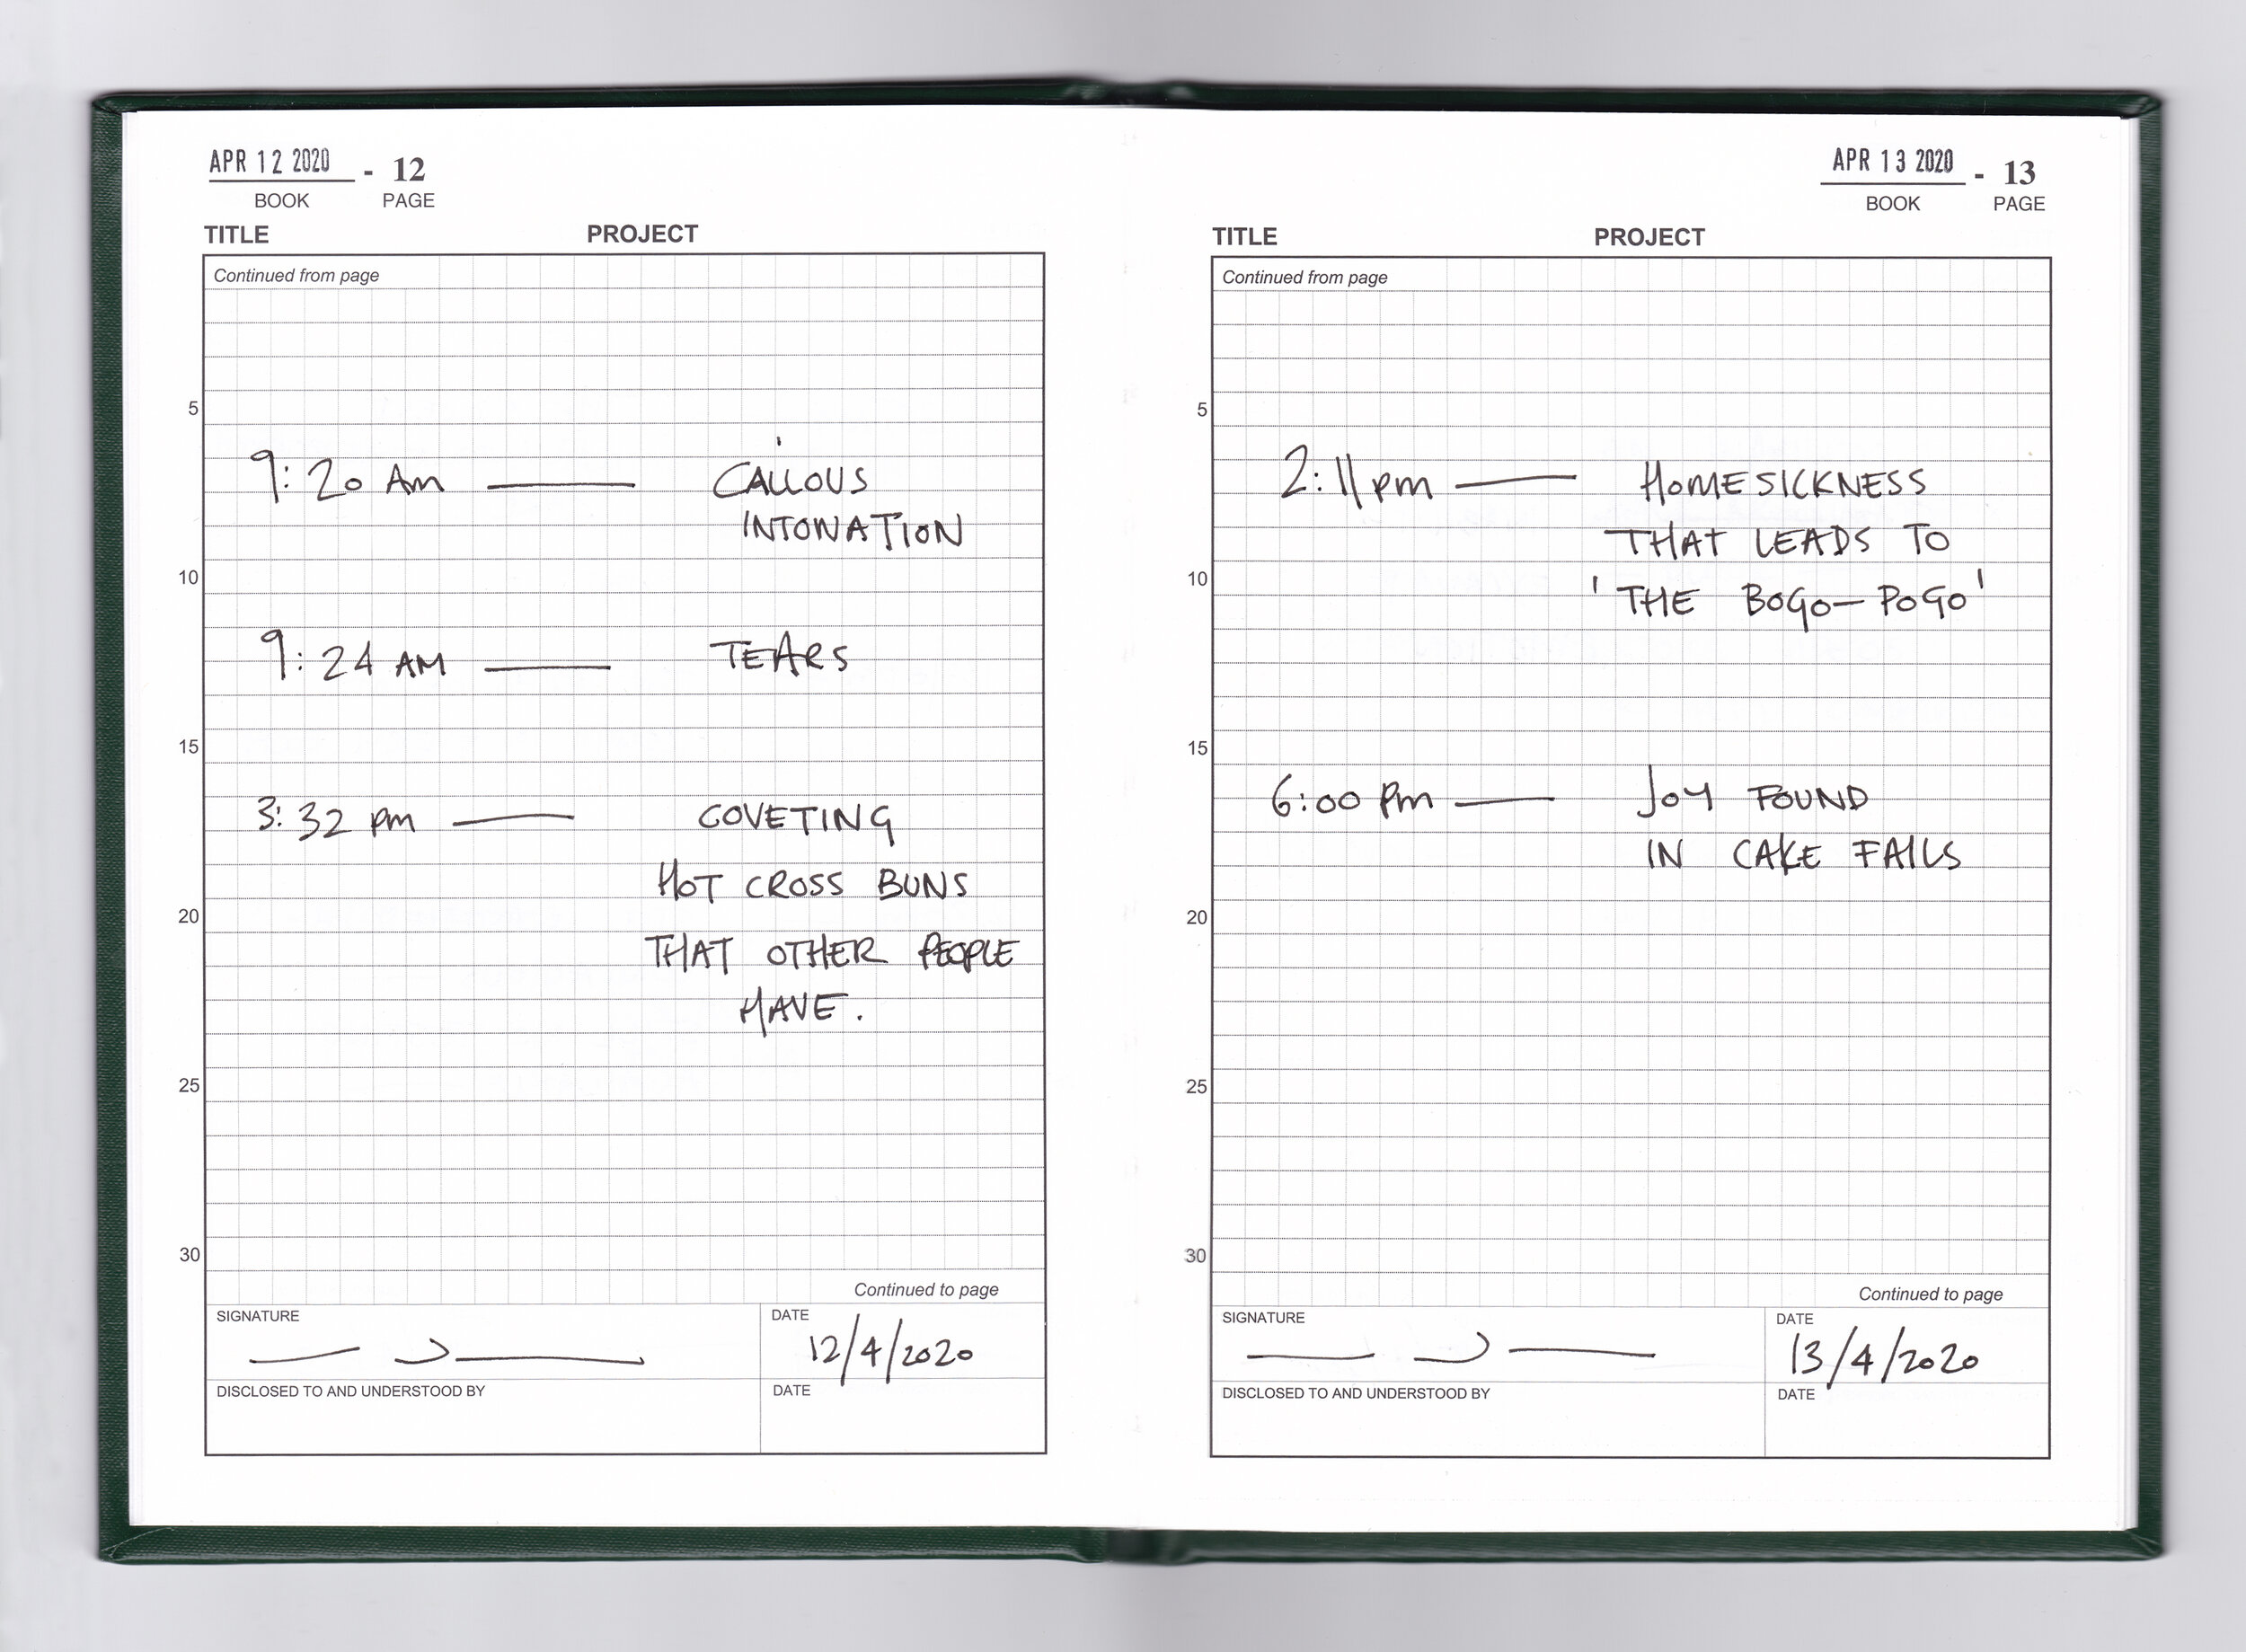 APR 12 2020 - 12
BOOK PAGE
TITLE PROJECT
Continued from page
5
9:20 AM — CALLOUS
INTONATION
10
9:24 AM — TEARS
15
3:32 PM — COVETING
HOT CROSS BUNS
20
THAT OTHER PEOPLE
HAVE.
25
30
Continued to page
SIGNATURE DATE
12/4/2020
DISCLOSED TO AND UNDERSTOOD BY DATE
APR 13 2020 - 13
BOOK PAGE
TITLE PROJECT
Continued from page
5
2:11 PM — HOMESICKNESS
THAT LEADS TO
10
'THE BOGO-POGO'
15
6:00 PM — JOY FOUND
IN CAKE FAILS
20
25
30
Continued to page
SIGNATURE DATE
13/4/2020
DISCLOSED TO AND UNDERSTOOD BY DATE